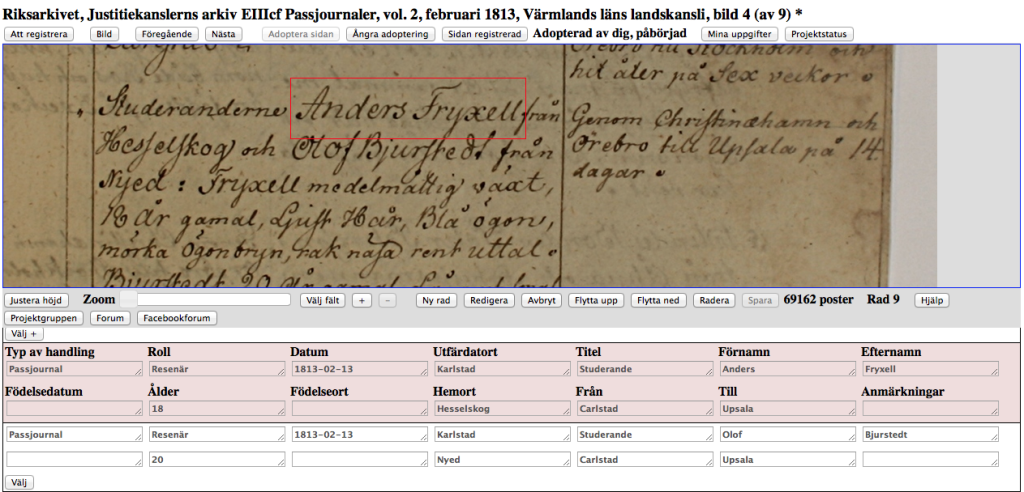 Riksarkivet, Justitiekanslerns arkiv EIIIcf Passjournaler, vol. 2, februari 1813, Värmlands läns landskansli, bild 4 (av 9) *
Att registrera Bild Föregående Nästa Adoptera sidan Ångra adoptering Sidan registrerad Adopterad av dig, påbörjad Mina uppgifter Projektstatus
Örebro till Stockholm och
hit åter på Sex veckor
Studeranderne Anders Fryxell från
Hesselskog och Olof Bjurstedt från
Nyed : Fryxell medelmåttig växt,
18 år gamal, Ljust Hår, Blå ögon,
mörka Ögonbryn, rak näsa rent uttal
Bjurstedt 20 år gamal
Genom Christinæhamn och
Örebro till Upsala på 14
dagar
Justera höjd Zoom Välj fält + - Ny rad Redigera Avbryt Flytta upp Flytta ned Radera Spara 69162 poster Rad 9 Hjälp
Projektgruppen Forum Facebookforum
Välj +
Typ av handling Roll Datum Utfärdatort Titel Förnamn Efternamn
Passjournal Resenär 1813-02-13 Karlstad Studerande Anders Fryxell
Födelsedatum Ålder Födelseort Hemort Från Till Anmärkningar
18 Hesselskog Carlstad Upsala
Passjournal Resenär 1813-02-13 Karlstad Studerande Olof Bjurstedt
20 Nyed Carlstad Upsala
Välj